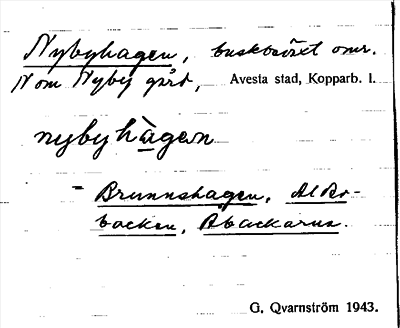 Nybyhagen, buskbväxt omr.
N om Nyby gård, Avesta stad, Kopparb. l.
nybyhàgen
- Brunnshagen, Alder-
backen, Åbackarna.
G. Qvarnström 1943.